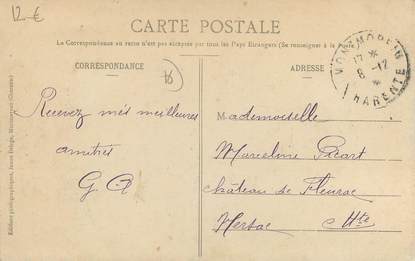 12 €
CARTE POSTALE
La Correspondance au recto n'est pas acceptée par tous les Pays Etrangers (Se renseigner à la Poste)
CORRESPONDANCE
ADRESSE
MONTMOREAU
17 *
8 -12
CHARENTE
Recevez mes meilleures
amitiés
G. R
Mademoiselle
Marceline Picart
château de Fleurac
Nersac Chte
Editions photographiques